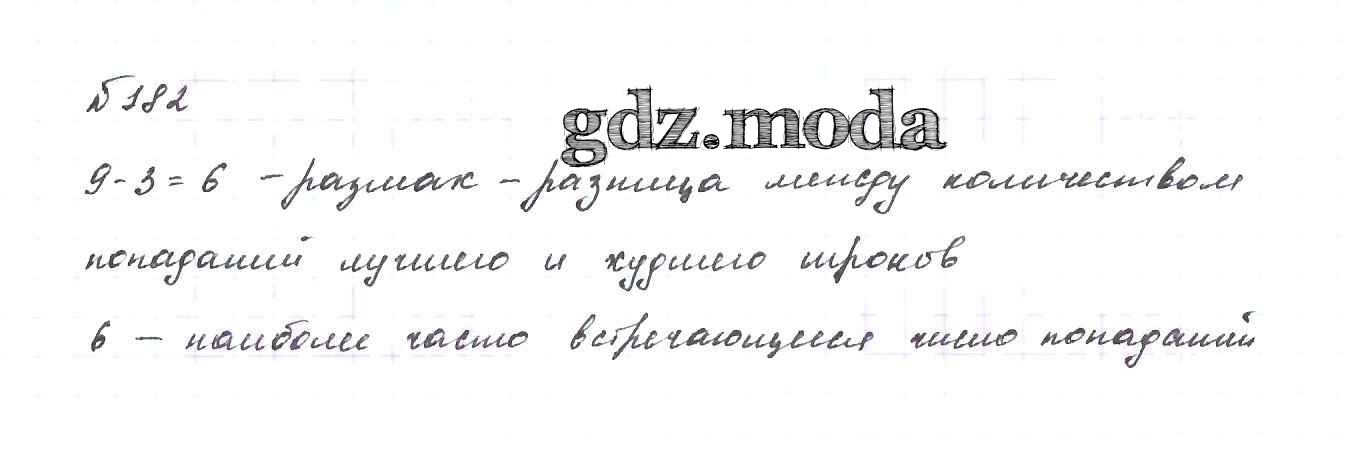 №182
gdz.moda
9-3=6 - размах - разница между количеством
попаданий лучшего и худшего игроков
6 - наиболее часто встречающееся число попаданий